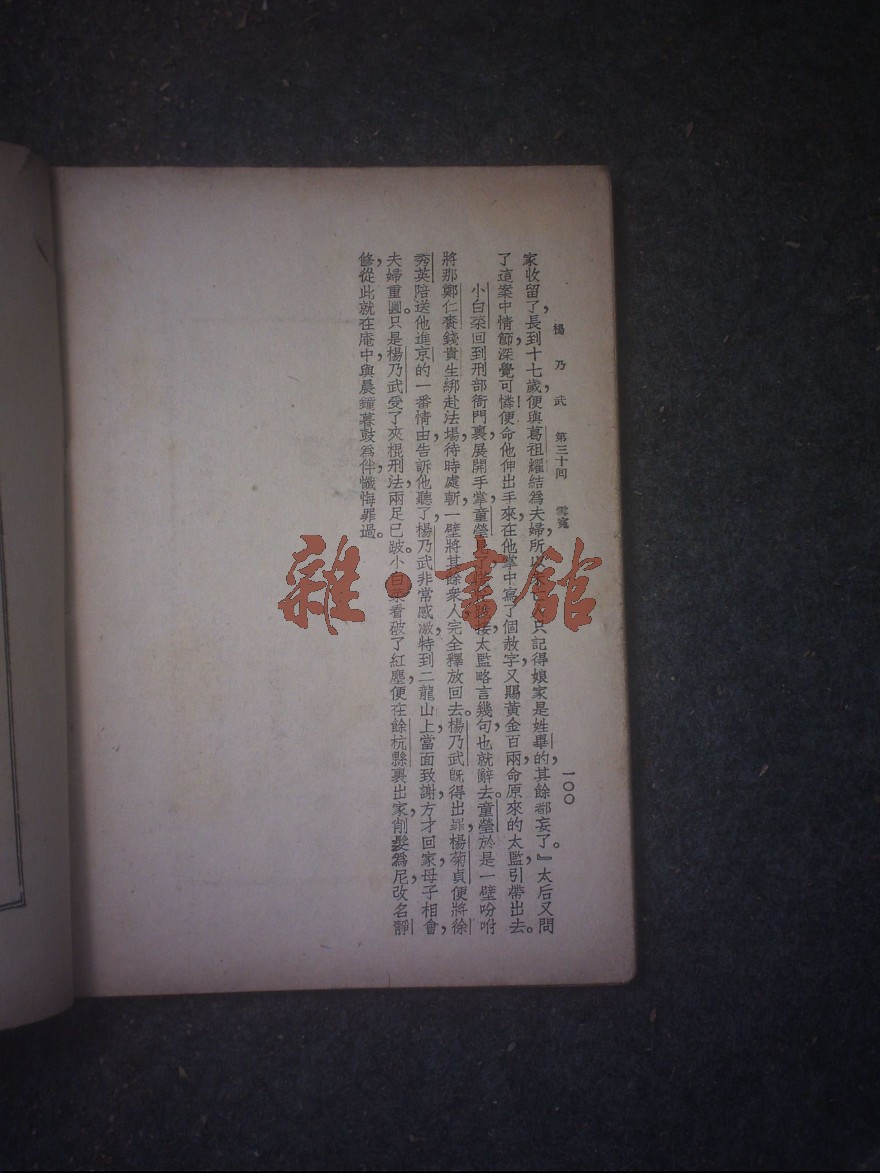 楊乃武 第三十回 雪寃 一〇〇
家收留了,長到十七歲,便與葛祖耀結爲夫婦,所以只記得娘家是姓畢的,其餘都妄了。』太后又問
了這案中情節,深覺可憐!便命他伸出手來,在他掌中寫了個赦字,又賜黃金百兩,命原來的太監,引帶出去。
小白菜回到刑部衙門裏,展開手掌,童瑩接太監略言幾句,也就辭去。童瑩於是一壁吩咐
將那鄭仁賚錢貴生綁赴法場,待時處斬,一壁將其餘衆人完全釋放回去。楊乃武旣得出罪,楊菊貞便將徐
秀英陪送他進京的一番情由,告訴他聽了,楊乃武非常感激,特到二龍山上,當面致謝,方才回家,母子相會,
夫婦重圓。只是楊乃武受了夾棍刑法,兩足已跛。小白菜看破了紅塵,便在餘杭縣裏出家,削髮爲尼,改名靜
修,從此就在庵中,與晨鐘暮鼓爲伴,懺悔罪過。
雜·書館